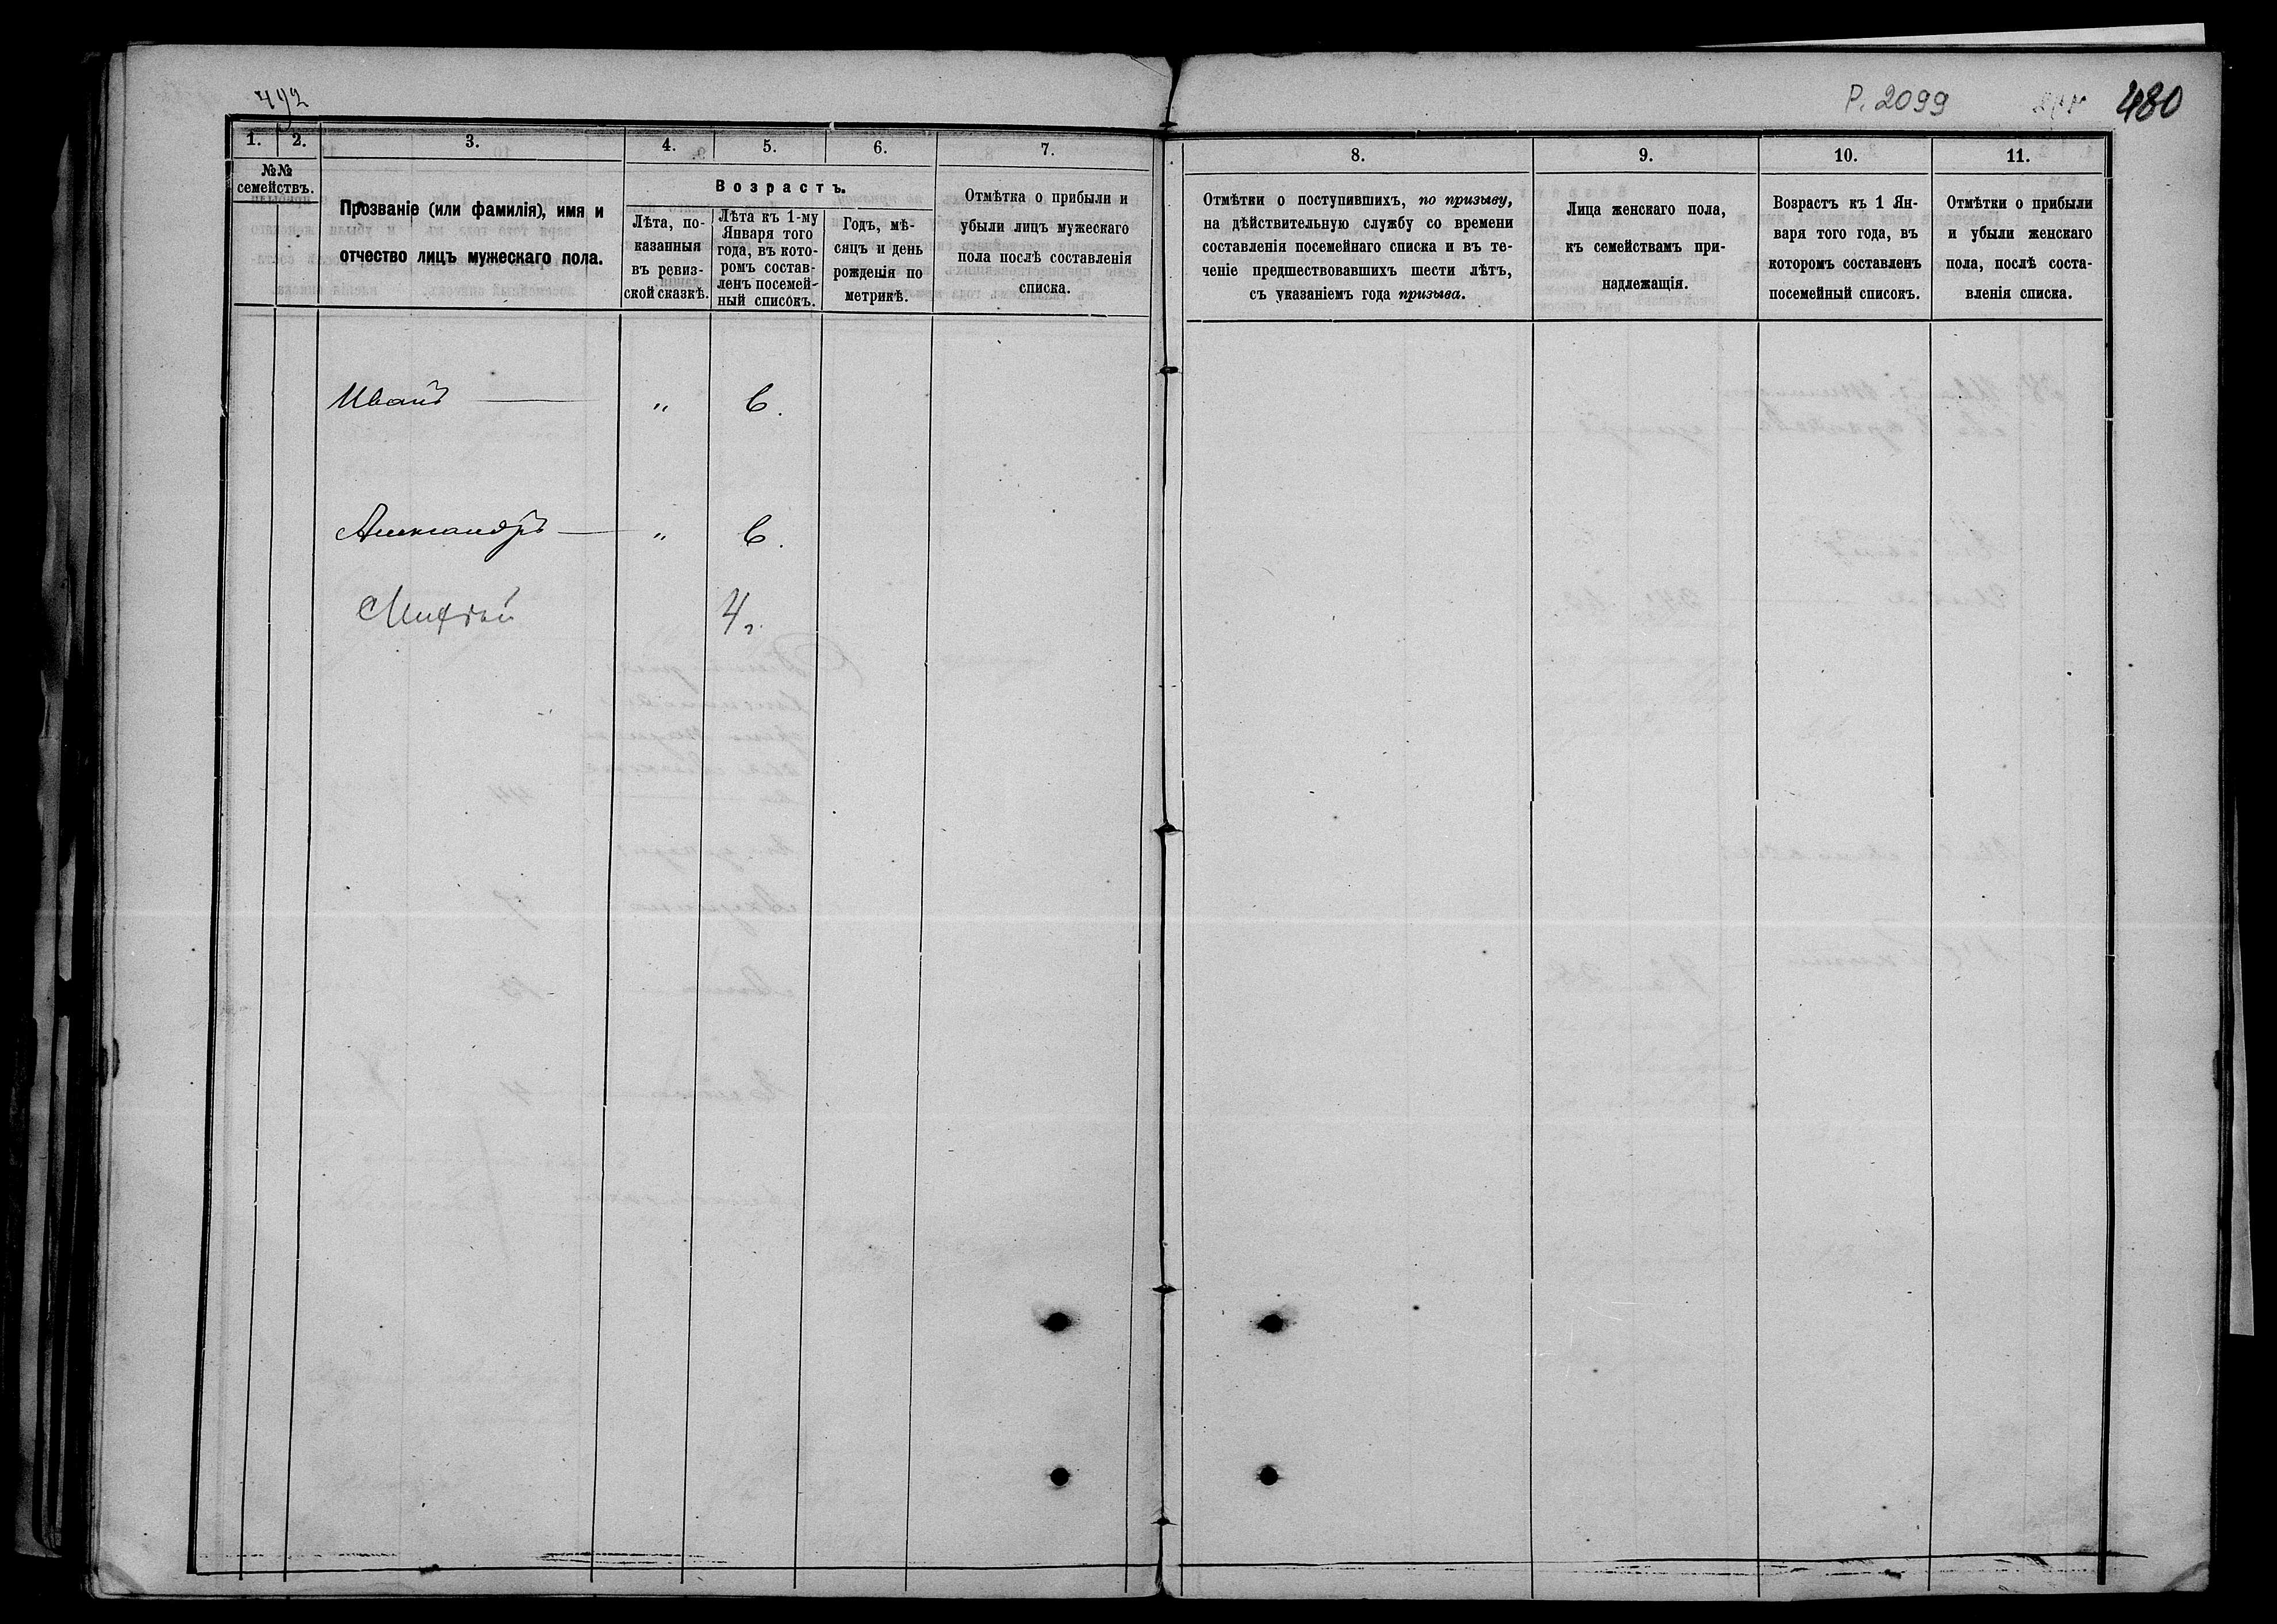 492
Р. 2099
480
1. 2. 3. 4. 5. 6. 7.
№№ семействъ.
Прозваніе (или фамилія), имя и
отчество лицъ мужескаго пола.
Возрастъ.
Лѣта, по-
казанныя
въ ревиз-
ской сказкѣ.
Лѣта къ 1-му
Января того
года, въ кото-
ромъ состав-
ленъ посемей-
ный списокъ.
Годъ, мѣ-
сяцъ и день
рожденія по
метрикѣ.
Отмѣтка о прибыли и
убыли лицъ мужескаго
пола послѣ составленія
списка.
8. 9. 10. 11.
Отмѣтки о поступившихъ, по призыву,
на дѣйствительную службу со времени
составленія посемейнаго списка и въ те-
ченіе предшествовавшихъ шести лѣтъ,
съ указаніемъ года призыва.
Лица женскаго пола,
къ семействамъ при-
надлежащія.
Возрастъ къ 1 Ян-
варя того года, въ
которомъ составленъ
посемейный списокъ.
Отмѣтки о прибыли
и убыли женскаго
пола, послѣ соста-
вленія списка.
Иванъ — " 6.
Александръ — " 6.
4 г.